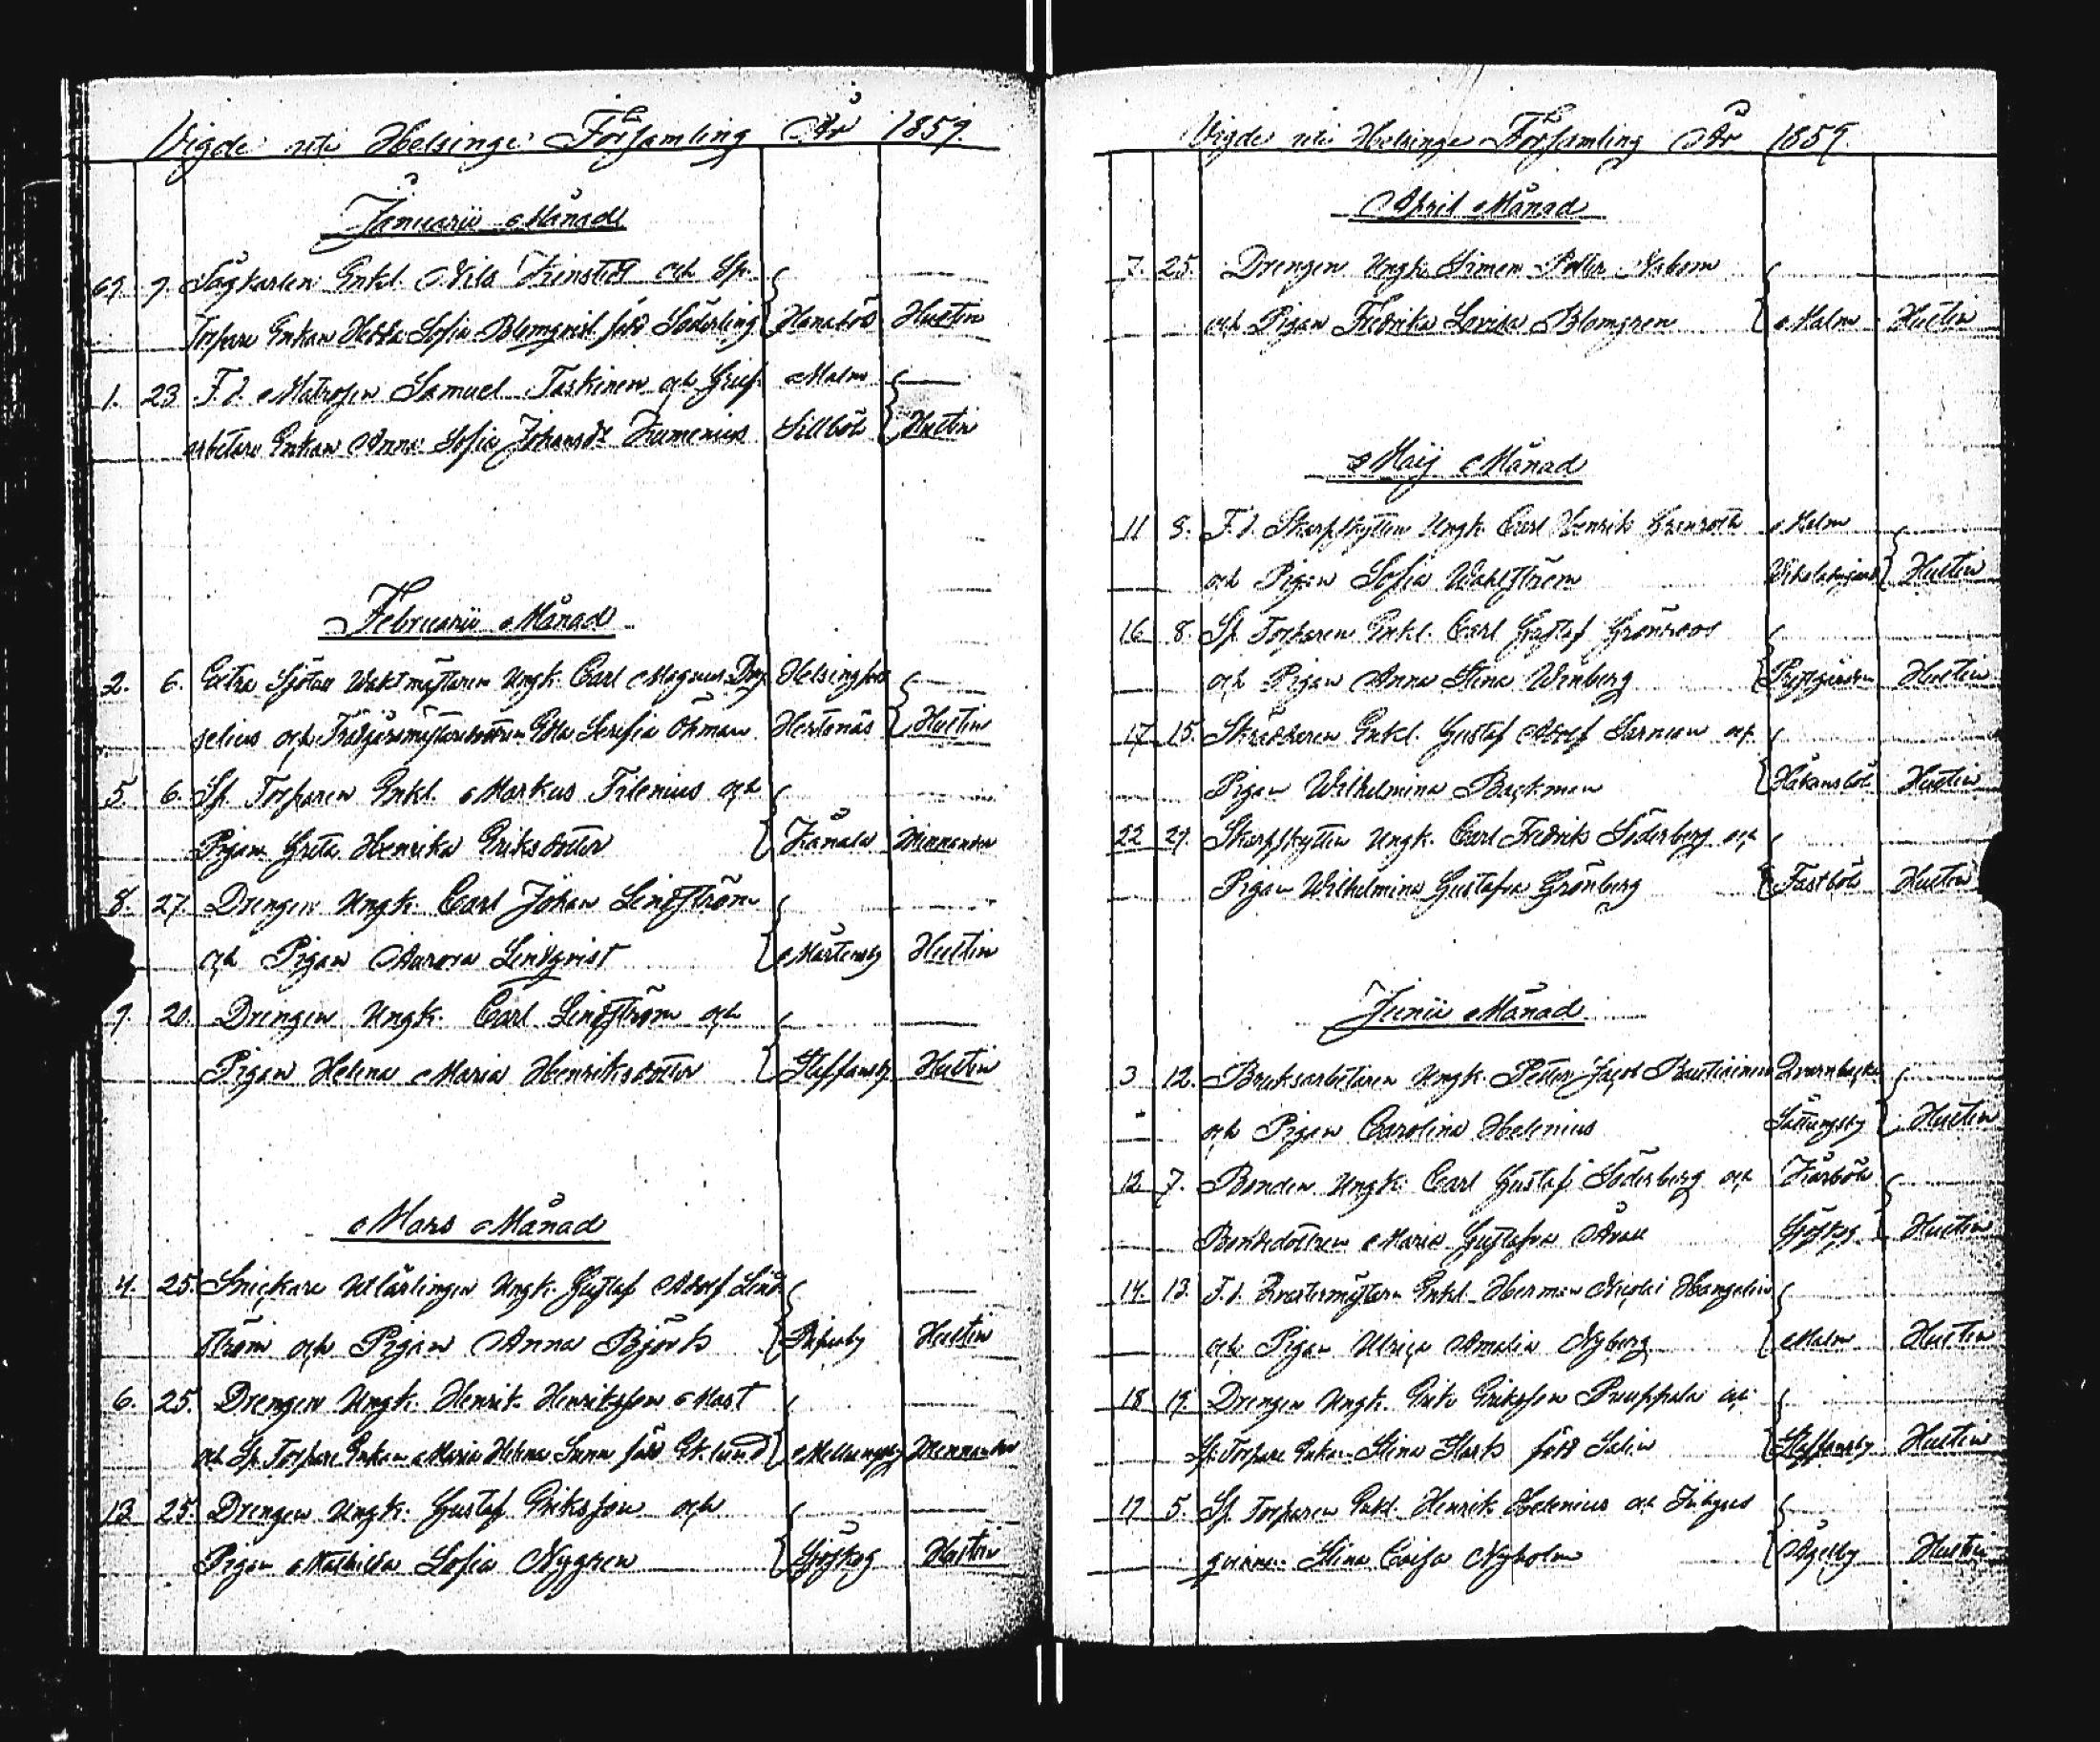 Vigde uti Helsinge Församling År 1859.
Januarii Månad
9. Sågkarlen Enkl. Nils och Sp.
Torpare Enkan Hedda Sofia Blomqvist född Söderling Hanaböle Hustin
1. 23 F.d. Matrosen Samuel Taskinen och Gruf Malm
arbetare Enkan Anna Sofia Johansdr Sillböle Hustin
Februarii Månad
2. 6. Extra Sjötull Waktmästaren Ungk. Carl Magnus Helsingfors
selius och Trädgårdsmästaredottren Edla Serafia Öhman Hertonäs Hustin
5. 6. Sp. Torparen Enkl. Markus Filenius och
Pigan Greta Henrika Eriksdotter Kånala Winnander
8. 27. Drengen Ungk. Carl Johan Lindström
och Pigan Aurora Lindqvist Mårtensby Hustin
9. 20. Drengen Ungk. Carl Lindström och
Pigan Helena Maria Henriksdotter Staffansby Hustin
Mars Månad
4. 25. Snickare Utlärlingen Ungk. Gustaf Adolf Lind
ström och Pigan Anna Björk Hustin
6. 25. Drengen Ungk. Henrik Henriksson Mast
och Sp. Torpare Enkan Maria Helena Sunn född Eklund Mellungsby Winnander
13. 25. Drengen Ungk. Gustaf Eriksson och
Pigan Mathilda Sofia Nygren Sjöskog Hustin
Vigde uti Helsinge Församling År 1859.
April Månad
7. 25. Drengen Ungk. Simon Petter
och Pigan Fredrika Lovisa Blomgren Malm Hustin
Maij Månad
11 8. F.d. Skarpskytten Ungk. Carl Henrik Grenroth Malm
och Pigan Sofia Wahlström Hustin
16 8. Sp. Torparen Enkl. Carl Gustaf Grönroos
och Pigan Anna Stina Winberg Prestgården Hustin
17 15. Skräddaren Enkl. Gustaf Adolf och
Pigan Wilhelmina Backman Håkansböle Hustin
22 29. Skarpskytten Ungk. Carl Fredrik Söderberg och
Pigan Wilhelmina Gustafva Grönberg Fastböle Hustin
Junii Månad
3 12. Bruksarbetaren Ungk. Petter Jacob Rautiainen Qvarnbacka
och Pigan Carolina Helenius Sottungsby Hustin
12 7. Bonden Ungk. Carl Gustaf Söderberg och Kårböle
Bondedottren Maria Gustafva Sjöskog Hustin
14. 13. F.d. Qvartermästarn Enkl. Herman Nicolai Hangelin
och Pigan Ulrica Amalia Nyberg Malm Hustin
18 19. Drengen Ungk. Erik Eriksson Pruuppala och
Sp. Torpare Enkan Stina Stark född Salin Staffansby Hustin
19 5. Sp. Torparen Enkl. Henrik Helenius och Inhyses
qvinnan Stina Caisa Nyholm Åggelby Hustin